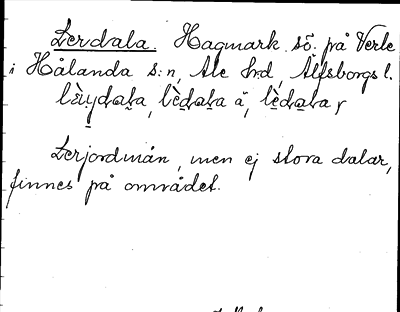 Lerdala. Hagmark sö. på Verle
i Hålanda s:n, Ale hd, Älfsborgs l.
Lerjordmån, men ej stora dalar,
finnes på området.